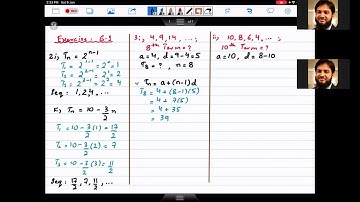 Exercise: 6.1
2i, Tn = 2^(n-1)
T1 = 2^(1-1) = 2^0 = 1
T2 = 2^(2-1) = 2^1 = 2
T3 = 2^(3-1) = 2^2 = 4
Seq: 1, 2, 4, ...
Tn = 10 - 3/2 n
T1 = 10 - 3/2 (1) = 17/2
T2 = 10 - 3/2 (2) = 7
T3 = 10 - 3/2 (3) = 11/2
Seq: 17/2, 7, 11/2, ...
3i, 4, 9, 14, ... ;
8th Term = ?
a = 4, d = 9-4 = 5
T8 = ?, n = 8
Tn = a + (n-1) d
T8 = 4 + (8-1) (5)
= 4 + 7(5)
= 4 + 35
= 39
10, 8, 6, 4, ... ;
10th Term = ?
a = 10, d = 8-10